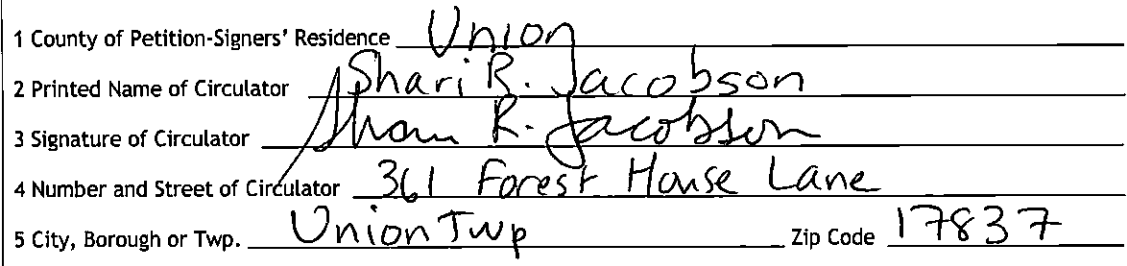 1 County of Petition-Signers' Residence Union
2 Printed Name of Circulator Shari R. Jacobson
3 Signature of Circulator Shari R. Jacobson
4 Number and Street of Circulator 361 Forest House Lane
5 City, Borough or Twp. Union Twp Zip Code 17837